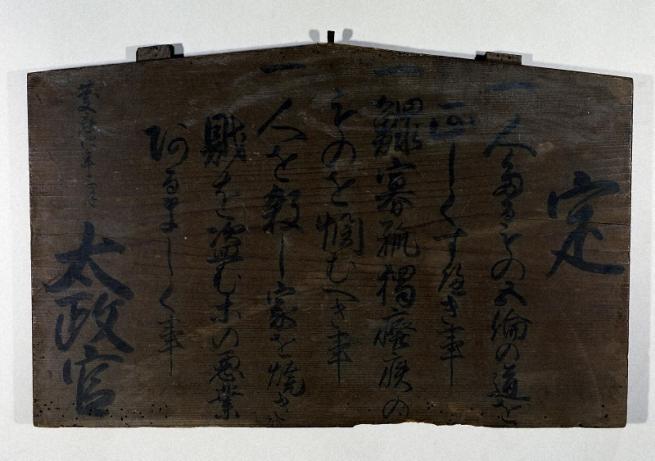 定
一 人たるもの五倫の道を
正しくすへき事
一 鰥寡孤獨癈疾の
ものを憫むへき事
一 人を殺し家を焼き
財を盗む等の悪業
阿るましく事
慶應四年三月
太政官